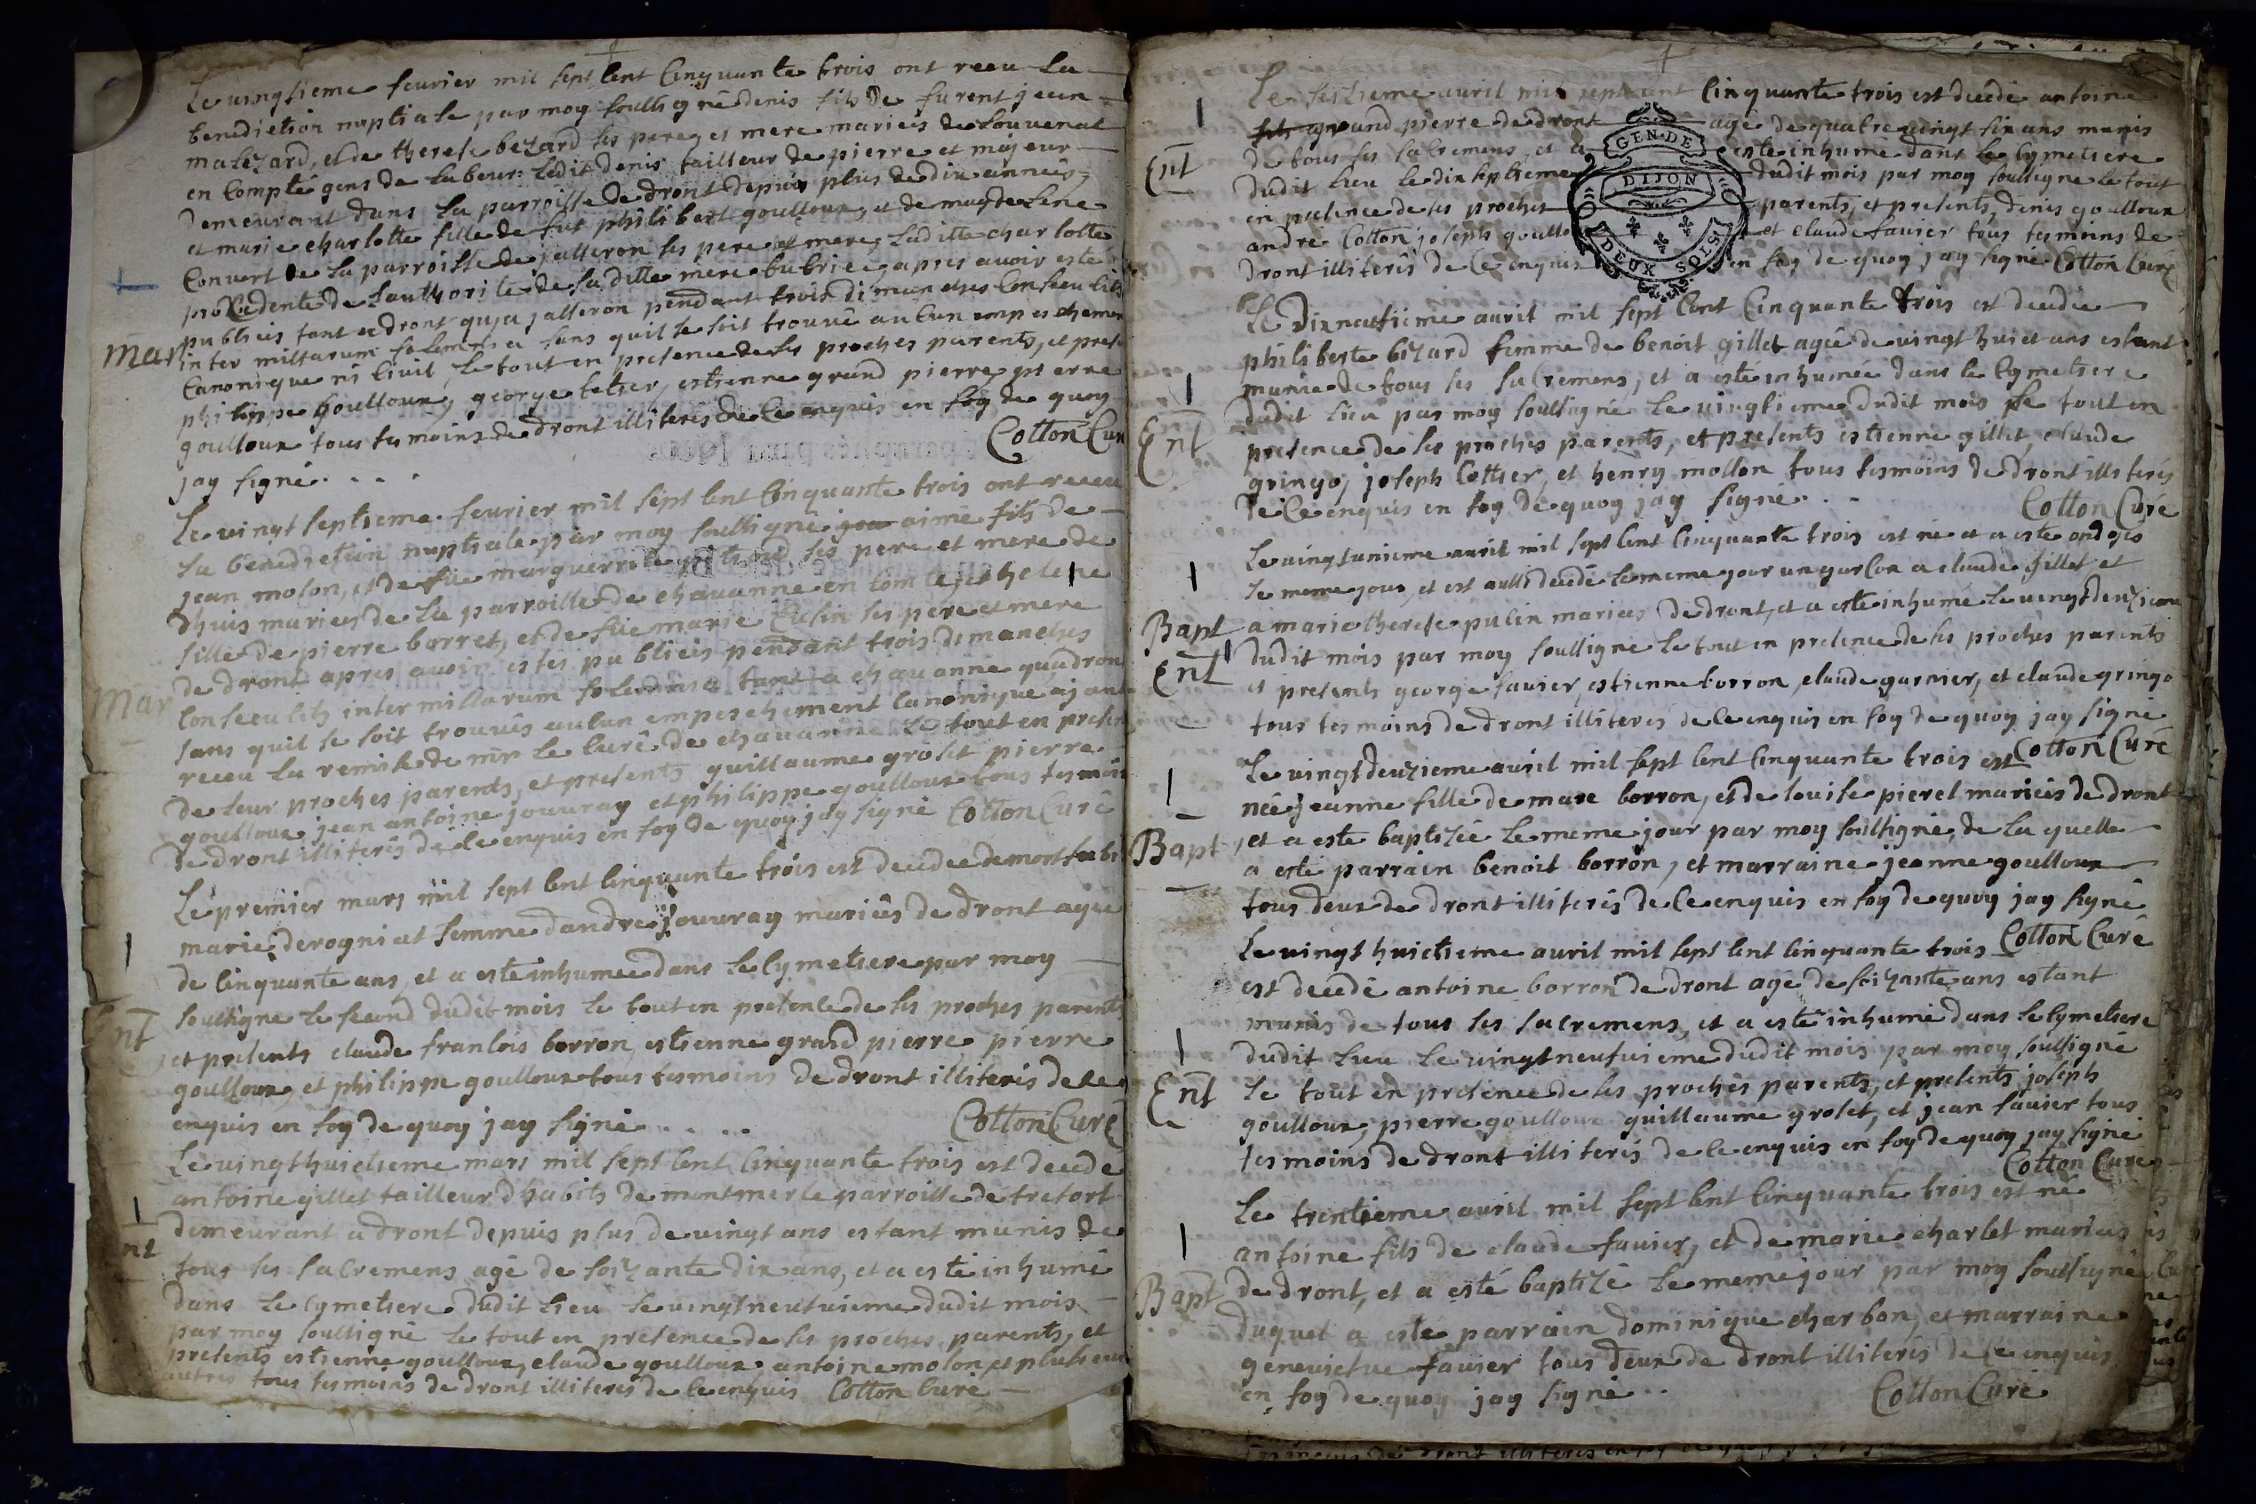 Le vingtieme feurier mil sept cent Cinquante trois ont receu La
benediction nuptiale par moy soussigné denis fils de furent jean
malezard, et de therese bezard ses pere et mere mariés de Louvenat
en Compté gens de Labeur: Ledit denis tailleur de pierre et majeur
Demeurant dans La parroisse de dront depuis plus de dix années,
et marie charlotte fille de fut philibert goulloux, et de magdelene
Convert de La parroisse de jasseron ses pere et mere, Laditte charlotte
procedente de Lauthorité de sa ditte mere après avoir esté
publiés tant a dront qu'a jasseron pendant trois dimanches Consecutifs
Mar inter missarum solemnia sans quil se soit trouvé aucun empeschement
Canonique ni Civil, Le tout en presence de ses proches parents, et pres
philippe goulloux, george tetier, estienne grand pierre pierre
goulloux tous tesmoins de dront illiterés de ce enquis en foy de quoy
jay signé . . . Cotton Cur
Le vingt septieme feurier mil sept cent Cinquante trois ont receu
La benediction nuptiale par moy soussigné aimé fils de
jean molon, et de füe marguerrite ses pere et mere de
dhuis mariés de La parroisse de chavanne en Comté, et helene
fille de pierre borret, et de füe marie ses pere et mere
de dront apres avoir estés publiés pendant trois dimanches
Mar Consecutifs inter missarum solemnia tant a chavanne qua dront
sans quil se soit trouvés aucun empeschement Canonique ajant
receu La remise de mr Le Curé de chavanne Le tout en presen
de Leur proches parents, et presents guillaume groset pierre
goulloux jean antoine jouvray et philippe goulloux tous tesmoin
de dront illiterés de ce enquis en foy de quoy jay signé Cotton Curé
Le premier mars mil sept cent cinquante trois est decedee
marie derogniat femme dandre jouvray mariés de dront agée
de cinquante ans, et a esté inhumee dans le cymetiere par moy
soussigné Le second dudit mois Le tout en presence de ses proches parents
Ent et presents claude francois borron, estienne grand pierre, pierre
goulloux, et philippe goulloux tous tesmoins de dront illiterés de ce
enquis en foy de quoy jay signé . . . . Cotton Curé
Le vingt huictieme mars mil sept cent Cinquante trois est decedé
antoine gillet tailleur dhabits de montmerle parroisse de trefort
demeurant a dront depuis plus de vingt ans estant munis de
Ent tous ses sacremens agé de soizante dix ans, et a esté inhumé
dans Le cymetiere dudit Lieu Le vingt neufuieme dudit mois
par moy soussigné Le tout en presence de ses proches parents, et
presents estienne goulloux, claude goulloux antoine molon, et plusieurs
autres tous tesmoins de dront illiterés de ce enquis Cotton Curé
Le seizieme auril mil sept cent Cinquante trois est decedé antoine
grand pierre de dront agé de quatre vingt six ans munis
Ent de tous ses sacremens, et a esté inhumé dans Le Cymetiere
dudit Lieu Le dix septieme dudit mois par moy soussigné Le tout
en presence de ses proches parents, et presents, denis goulloux
andré Cotton, joseph goullo et claude favier tous tesmoins de
dront illiterés de ce enquis en foy de quoy jay signé Cotton Curé
GEN·DE
DIJON
DEUX SOLS
Le dixneufieme auril mil sept Cent Cinquante trois est decedée
philiberte bizard femme de benoit gillet agée de vingt huict ans estant
munie de tous ses sacremens, et a esté inhumée dans le Cymetiere
dudit Lieu par moy soussigné Le vingtieme dudit mois Le tout en
Ent presence de ses proches parents, et presents estienne gillet, claude
gringo, joseph Cottier, et henry mollon tous tesmoins de dront illiterés
de Ce enquis en foy de quoy jay signé . . Cotton Curé
Le vingtunieme auril mil sept cent Cinquante trois est né et a esté ondojés
Le meme jour, et est aussi decedé Le meme jour un garcon a claude gillet et
Bapt a marie therese pulin mariés de dront, et a esté inhumé Le vingt deuzieme
dudit mois par moy soussigné Le tout en presence de ses proches parents
Ent et presents george favier, estienne borron, claude garnier, et claude gringo
tous tesmoins de dront illiterés de Ce enquis en foy de quoy jay signé
Cotton Curé
Le vingt deuzieme auril mil sept cent Cinquante trois est
née jeanne fille de marc borron, et de louise pierel mariés de dront
Bapt, et a esté baptizée Le meme jour par moy soussigné, de La quelle
a esté parrain benoit borron, et marraine jeanne goulloux
tous deux de dront illiterés de Ce enquis en foy de quoy jay signé
Cotton Curé
Le vingt huictieme auril mil sept cent cinquante trois
est decedé antoine borron de dront agé de soizante ans estant
munis de tous ses sacremens, et a esté inhumé dans le Cymetiere
dudit Lieu Le vingt neufuieme dudit mois par moy soussigné
Ent Le tout en presence de ses proches parents, et presents joseph
goulloux, pierre goulloux guillaume groset, et jean favier tous
tesmoins de dront illiterés de Ce enquis en foy de quoy jay signé
Cotton Curé
Le trentieme auril mil sept cent Cinquante trois est né
antoine fils de claude favier, et de marie charlet mariés
Bapt de dront, et a esté baptizé Le meme jour par moy soussigné
duquel a esté parrain dominique charbon, et marraine
genevieue favier tous deux de dront illiterés de ce enquis
en foy de quoy jay signé . . Cotton Curé